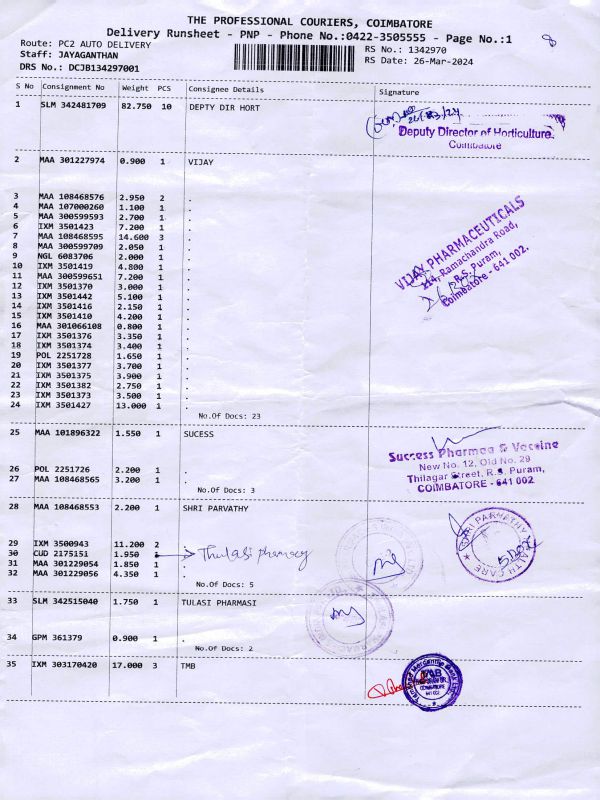 THE PROFESSIONAL COURIERS, COIMBATORE
Delivery Runsheet - PNP - Phone No.:0422-3505555 - Page No.:1
8
Route: PC2 AUTO DELIVERY
RS No.: 1342970
Staff: JAYAGANTHAN
RS Date: 26-Mar-2024
DRS No.: DCJB134297001
S No Consignment No Weight PCS Consignee Details Signature
1 SLM 342481709 82.750 10 DEPTY DIR HORT
Deputy Director of Horticulture.
Coimbatore
2 MAA 301227974 0.900 1 VIJAY
3 MAA 108468576 2.950 2 .
4 MAA 107000260 1.100 1 .
5 MAA 300599593 2.700 1 .
6 IXM 3501423 7.200 1 .
7 MAA 108468595 14.600 3 .
8 MAA 300599709 2.050 1 .
9 NGL 6083706 2.000 1 .
10 IXM 3501419 4.800 1 .
11 MAA 300599651 7.200 1 .
12 IXM 3501370 3.000 1 .
13 IXM 3501442 5.100 1 .
14 IXM 3501416 2.150 1 .
15 IXM 3501410 4.200 1 .
16 MAA 301066108 0.800 1 .
17 IXM 3501376 3.350 1 .
18 IXM 3501374 3.400 1 .
19 POL 2251728 1.650 1 .
20 IXM 3501377 3.700 1 .
21 IXM 3501375 3.900 1 .
22 IXM 3501382 2.750 1 .
23 IXM 3501373 3.500 1 .
24 IXM 3501427 13.000 1 .
No.Of Docs: 23
VIJAY PHARMACEUTICALS
114, Ramachandra Road,
R.S. Puram,
Coimbatore - 641 002.
25 MAA 101896322 1.550 1 SUCESS
Success Pharmaa & Vaccine
New No. 12, Old No. 29
Thilagar Street, R.S. Puram,
COIMBATORE - 641 002
26 POL 2251726 2.200 1 .
27 MAA 108468565 3.200 1 .
No.Of Docs: 3
28 MAA 108468553 2.200 1 SHRI PARVATHY
29 IXM 3500943 11.200 2 .
30 CUD 2175151 1.950 Thulasi pharmacy
31 MAA 301229054 1.850 1 .
32 MAA 301229056 4.350 1 .
No.Of Docs: 5
PARVATHY HEALTH CARE
33 SLM 342515040 1.750 1 TULASI PHARMASI
34 GPM 361379 0.900 1 .
No.Of Docs: 2
35 IXM 303170420 17.000 3 TMB
TMB
COIMBATORE
641 002